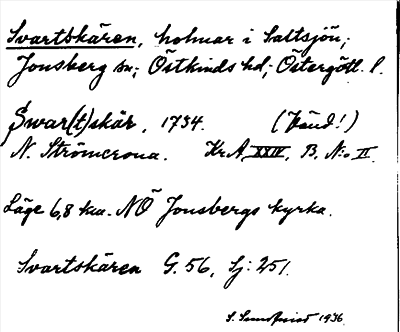 Svartskären, holmar i Saltsjön;
Jonsberg sn; Östkinds hd; Östergötl. l.
Swar(t)skär, 1734. (Vänd!)
N. Strömcrona. Kr.A. XXIV, B. N:o II.
Läge 6,8 km. NÖ Jonsbergs kyrka.
Svartskären G. 56, Sj: 251.
S. 1936.